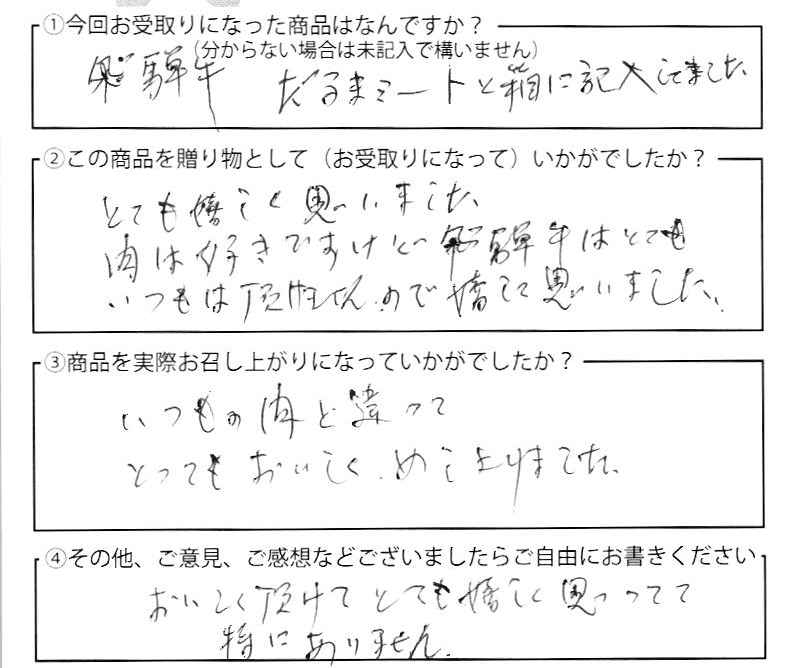 ①今回お受取りになった商品はなんですか？
（分からない場合は未記入で構いません）
飛騨牛 だるまミートと箱に記入してました
②この商品を贈り物として（お受取りになって）いかがでしたか？
とても嬉しく思いました
肉は好きですけど飛騨牛はとても
いつもは頂けません。ので嬉しく思いました。
③商品を実際お召し上がりになっていかがでしたか？
いつもの肉と違って
とってもおいしく、めし上りました。
④その他、ご意見、ご感想などございましたらご自由にお書きください
おいしく頂けてとても嬉しく思ってて
特にありません。